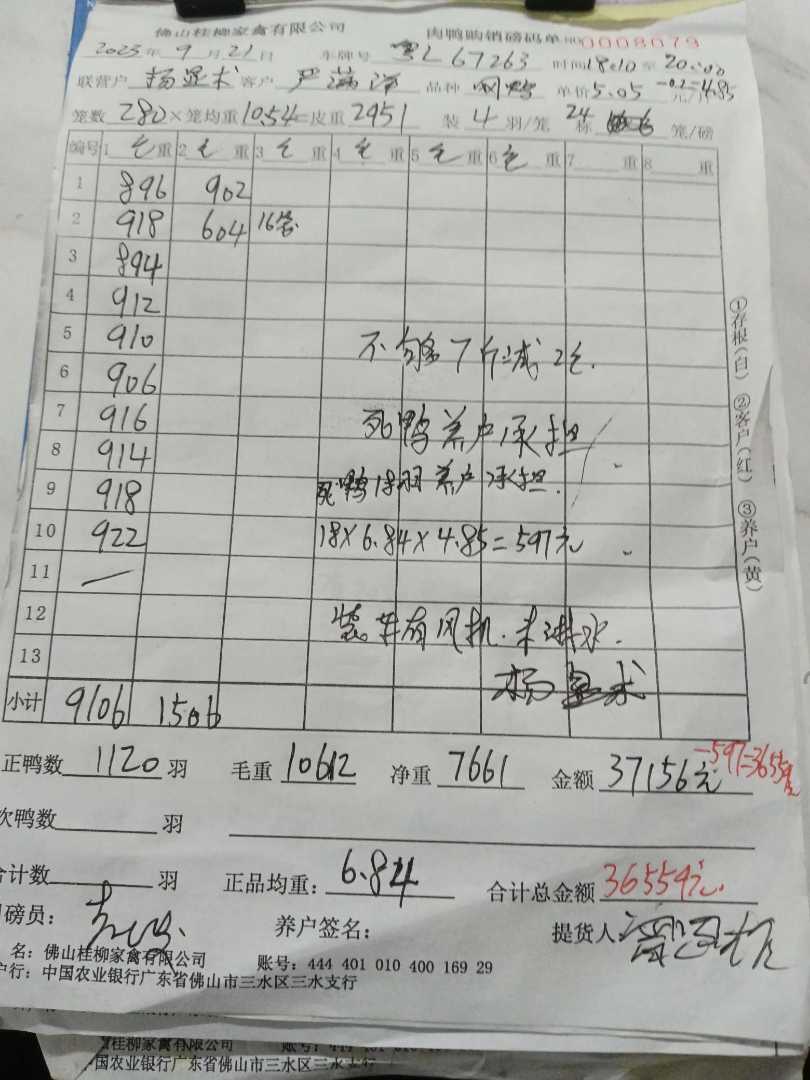 佛山桂柳家禽有限公司 肉鸭购销磅码单 №0008079
2025年9月21日 车牌号 粤L67263 时间18:10至20:00
联营户 杨显术 客户 严 品种 单价5.05 -0.2元/斤=4.85
笼数 280×笼均重10.54=皮重2951 装4羽/笼 24栋 笼/磅
编号 1毛重 2毛重 3毛重 4毛重 5毛重 6毛重 7重 8重
1 896 902
2 918 604 16笼
3 894
4 912
5 910 不够7斤减2毛.
6 906
7 916 死鸭养户承担
8 914
9 918 死鸭18羽养户承担.
10 922 18×6.84×4.85=597元
11 —
12 装车有风机.未淋水.
13 杨显术
小计 9106 1506
正鸭数1120羽 毛重10612 净重7661 金额37156元 -597=36559元
次鸭数 羽
合计数 羽 正品均重:6.84 合计总金额36559元.
磅员: 养户签名: 提货人
名:佛山桂柳家禽有限公司 账号:444 401 010 400 169 29
户行:中国农业银行广东省佛山市三水区三水支行
①存根(白) ②客户(红) ③养户(黄)
桂柳家禽有限公司
国农业银行广东省佛山市三水区三水支行